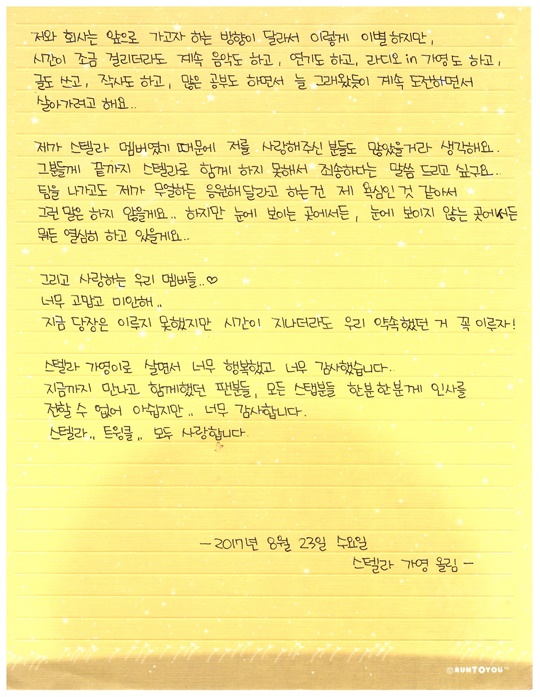 저와 회사는 앞으로 가고자 하는 방향이 달라서 이렇게 이별 하지만,
시간이 조금 걸리더라도 계속 음악도 하고, 연기도 하고, 라디오 in 가영도 하고,
글도 쓰고, 작사도 하고, 많은 공부도 하면서 늘 그래왔듯이 계속 도전하면서
살아가려고 해요..
제가 스텔라 멤버였기 때문에 저를 사랑해주신 분들도 많았을거라 생각해요.
그분들께 끝까지 스텔라로 함께 하지 못해서 죄송하다는 말씀 드리고 싶구요..
팀을 나가고도 제가 무얼하든 응원해달라고 하는건 제 욕심인 것 같아서
그런 말은 하지 않을게요.. 하지만 눈에 보이는 곳에서든, 눈에 보이지 않는 곳에서든
뭐든 열심히 하고 있을게요..
그리고 사랑하는 우리 멤버들..♡
너무 고맙고 미안해..
지금 당장은 이루지 못했지만 시간이 지나더라도 우리 약속했던 거 꼭 이루자!
스텔라 가영이로 살면서 너무 행복했고 너무 감사했습니다..
지금까지 만나고 함께했던 팬분들, 모든 스탭분들 한분한분께 인사를
전할 수 없어 아쉽지만.. 너무 감사합니다.
스텔라.. 트윙클.. 모두 사랑합니다
-2017년 8월 23일 수요일
스텔라 가영 올림-
©RUNTOYOU™